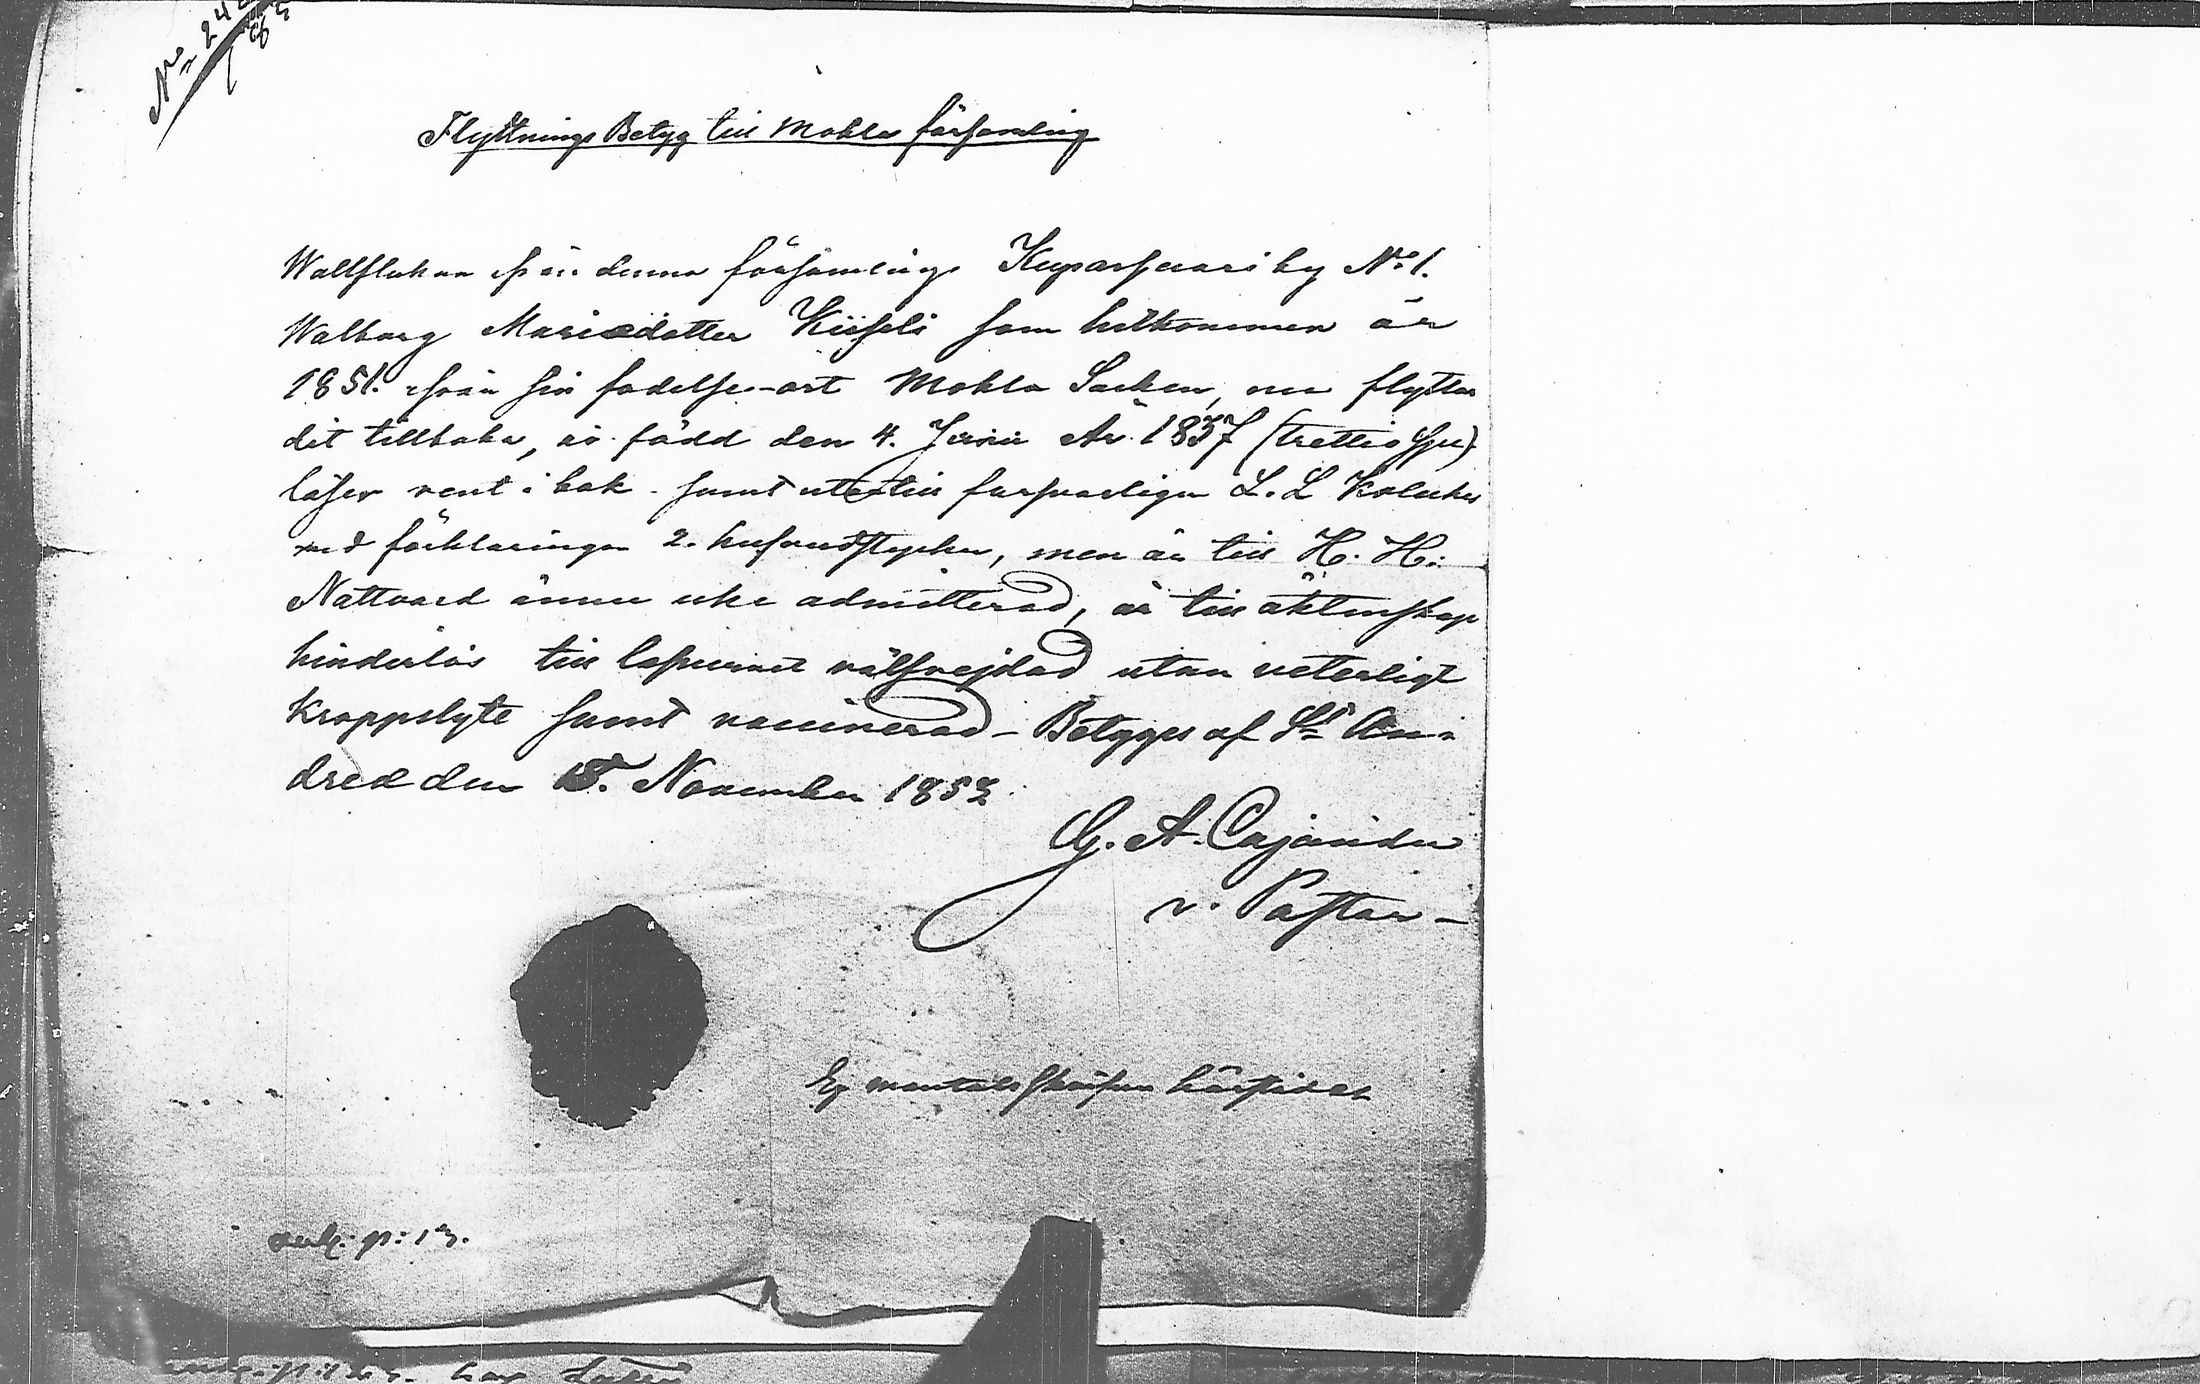 No 244
Flyttnings Betyg till Mohla församling
Wallflickan från denna församlings Kuparsaari by No 1.
Walborg Mariædotter Kiiseli som hitkommen är
1851. från sin födelse-ort Mohla Socken, nu flyttar
dit tillbaka, är född den 4. Junii År 1837 (trettio sju)
läser rent i bok samt utantill försvarligen L. L Kateches
med förklaringen 2. hufvudstycken, men är till H. H:
Nattvard ännu icke admitterad, är till äktenskap
hinderlös till lefvernet välfrejdad utan veterligt
kroppslyte samt vaccinerad - Betyges af St An-
dreæ den November 1852
G. A. Cajander
v. Pastor -
Ej mantalsskrifven härstädes
p: 13.